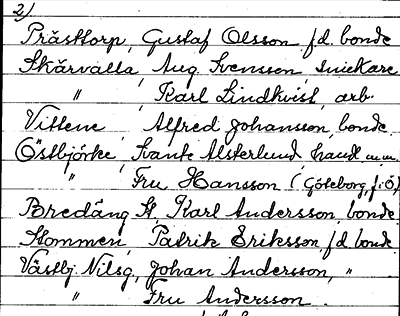 2)
Prästtorp, Gustaf Olsson f.d. bonde
Skärvalla, Aug. Svensson snickare
" , Karl Lindkvist, arb.
Vittene, Alfred Johansson, bonde
Östbjörke, Svante Alsterlund handl. m.m.
" Fru Hansson (Göteborg, f. i Ö)
Bredäng St., Karl Andersson, bonde
Stommen, Patrik Eriksson, f.d. bonde
Västbj. Nilsg, Johan Andersson, "
" Fru Andersson.